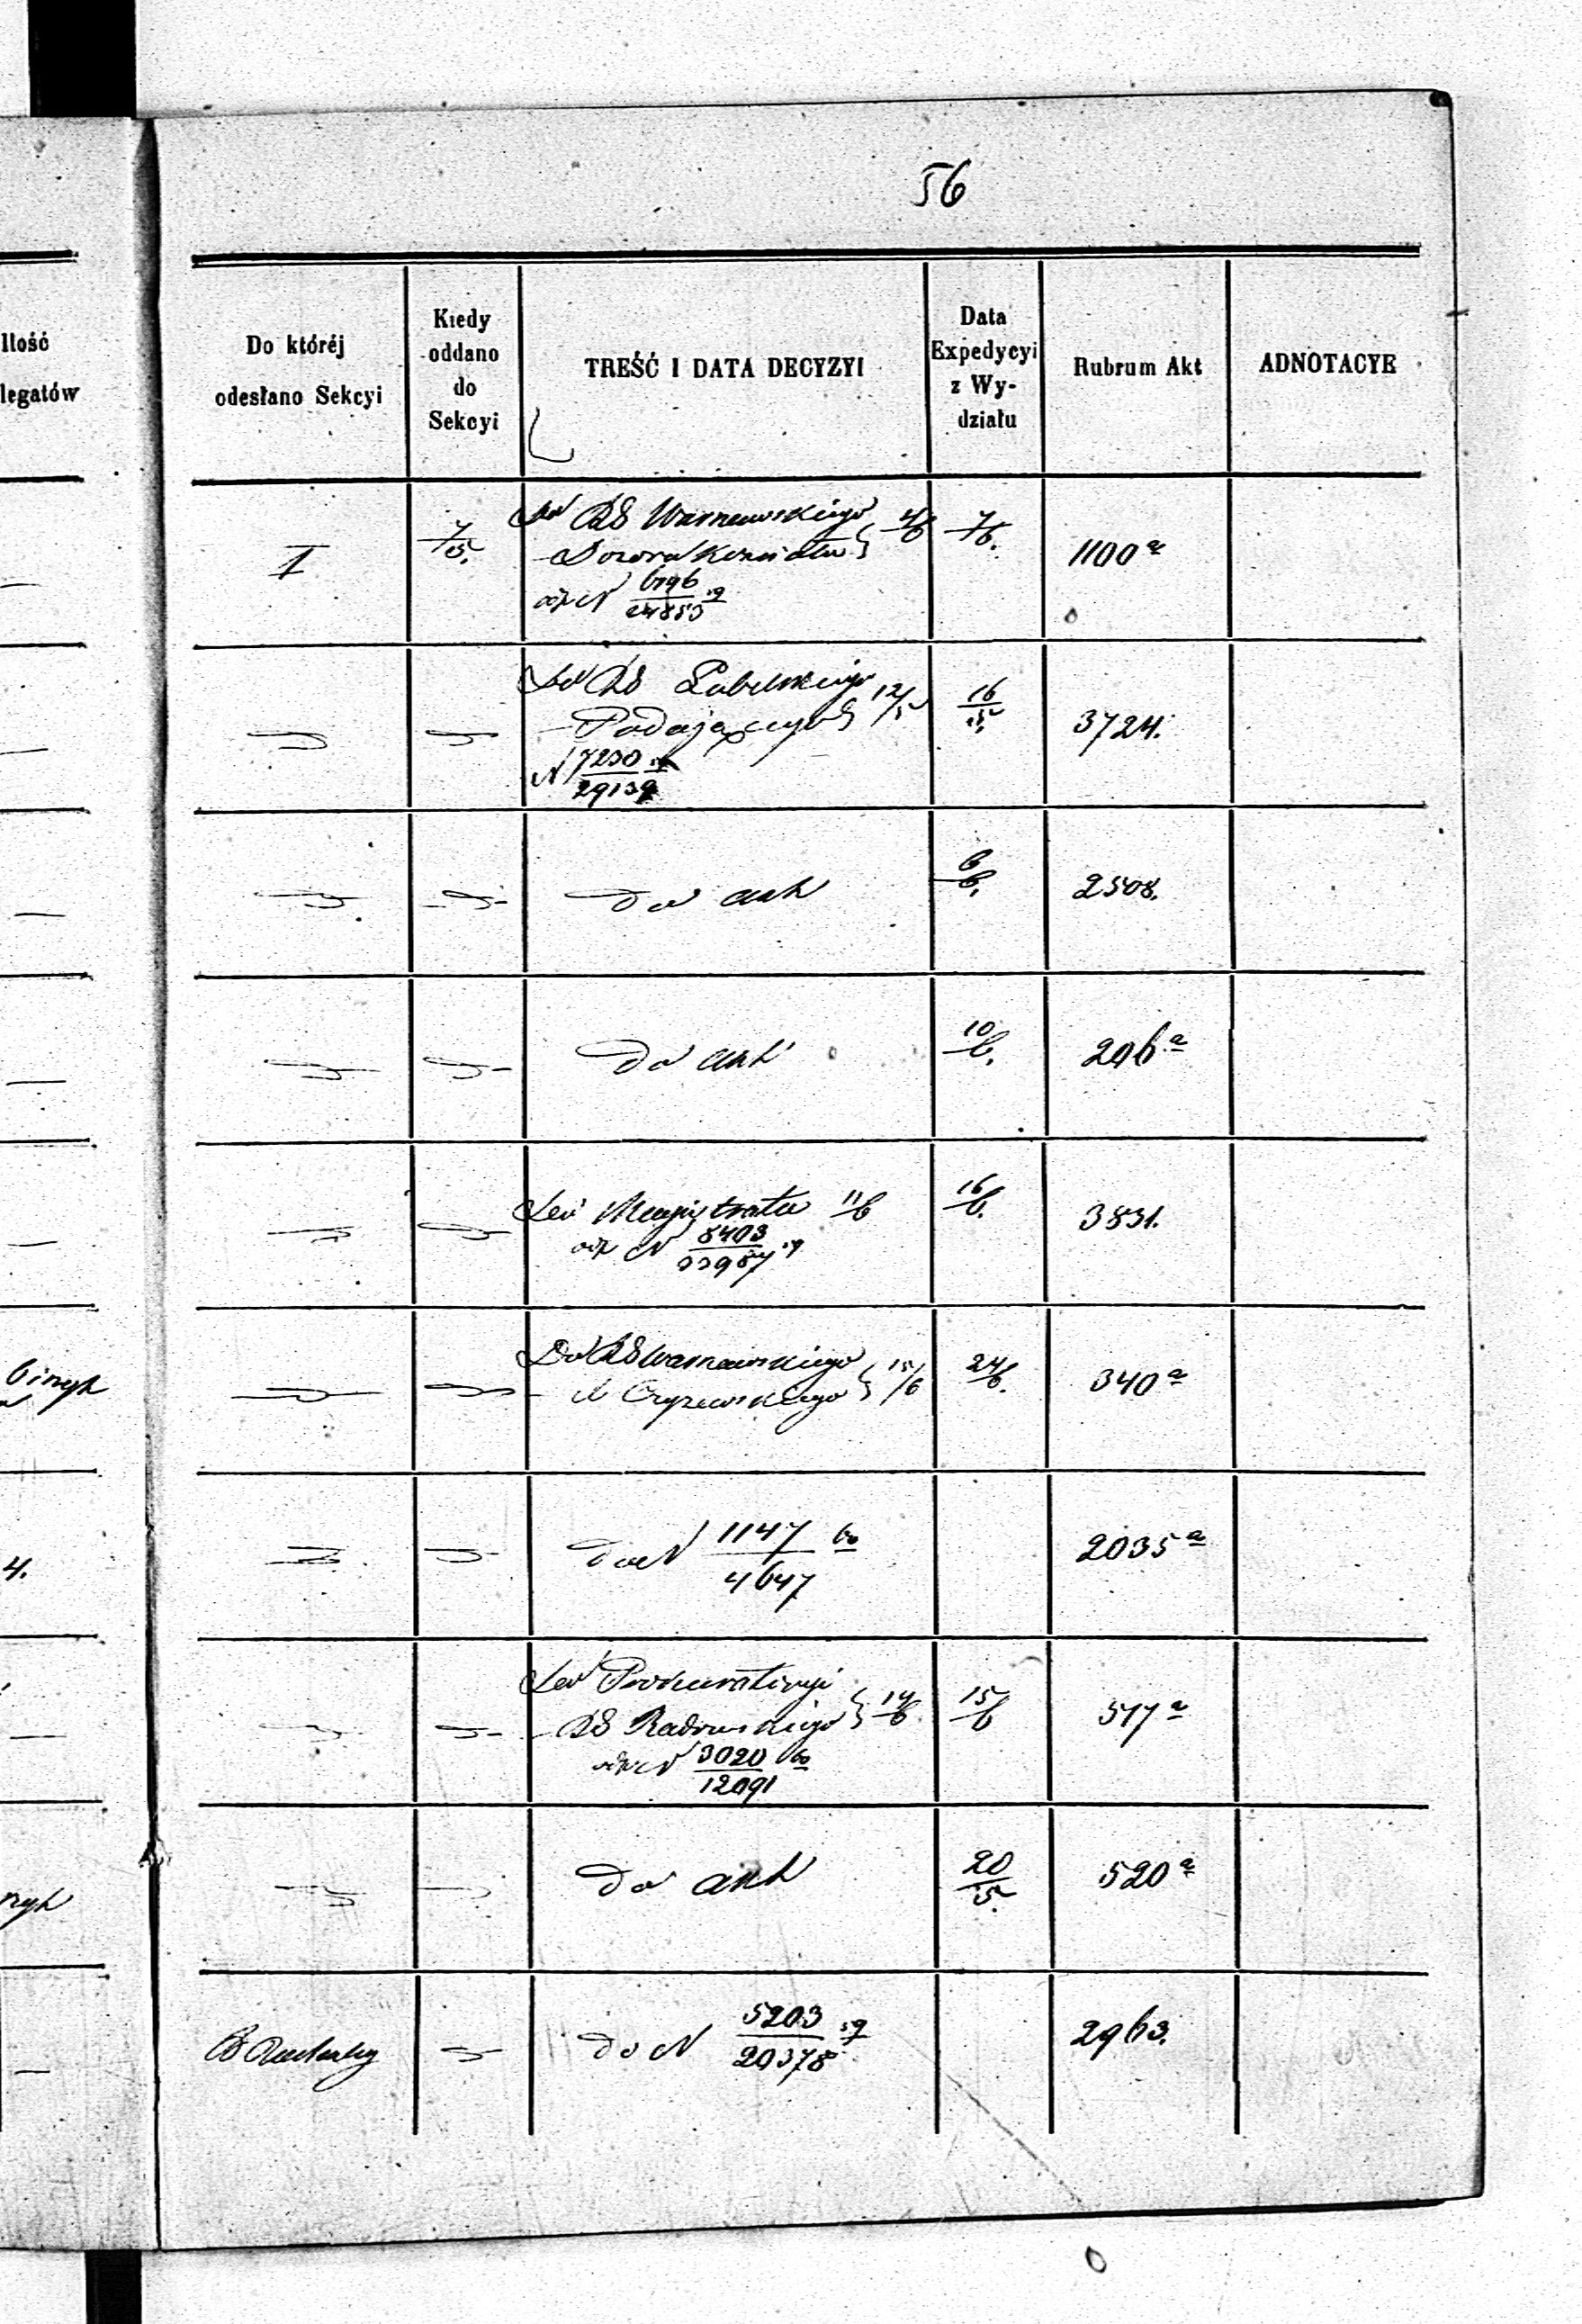 56
Ilość
legatów
Do któréj
odesłano Sekcyi
Kiedy
oddano
do
Sekcyi
TREŚĆ I DATA DECYZYI
Data
Expedycyi
z Wy-
działu
Rubrum Akt
ADNOTACYE
I
7/5.
RS Warszawskiego
Dozoru
4/6
7/6.
1100 a
N 6796
24853
RS Lubelskiego
Podającego
12/5
N 7230
29139
16/5.
3724.
Do akt
6/6.
2508.
Do akt
10/6.
296 a
Do Magistratu 11/6
N 8403
33987
16/6.
3831.
Do RS Warszawskiego
15/6
24/6.
340 a
4.
Do N 1147
4647
2035 a
Do Prokuratoryi
RS Radomskiego
14/6
N 3020
12091
15/6
517 a
Do akt
20/5.
520 a
Do N 5203
20378
2963.